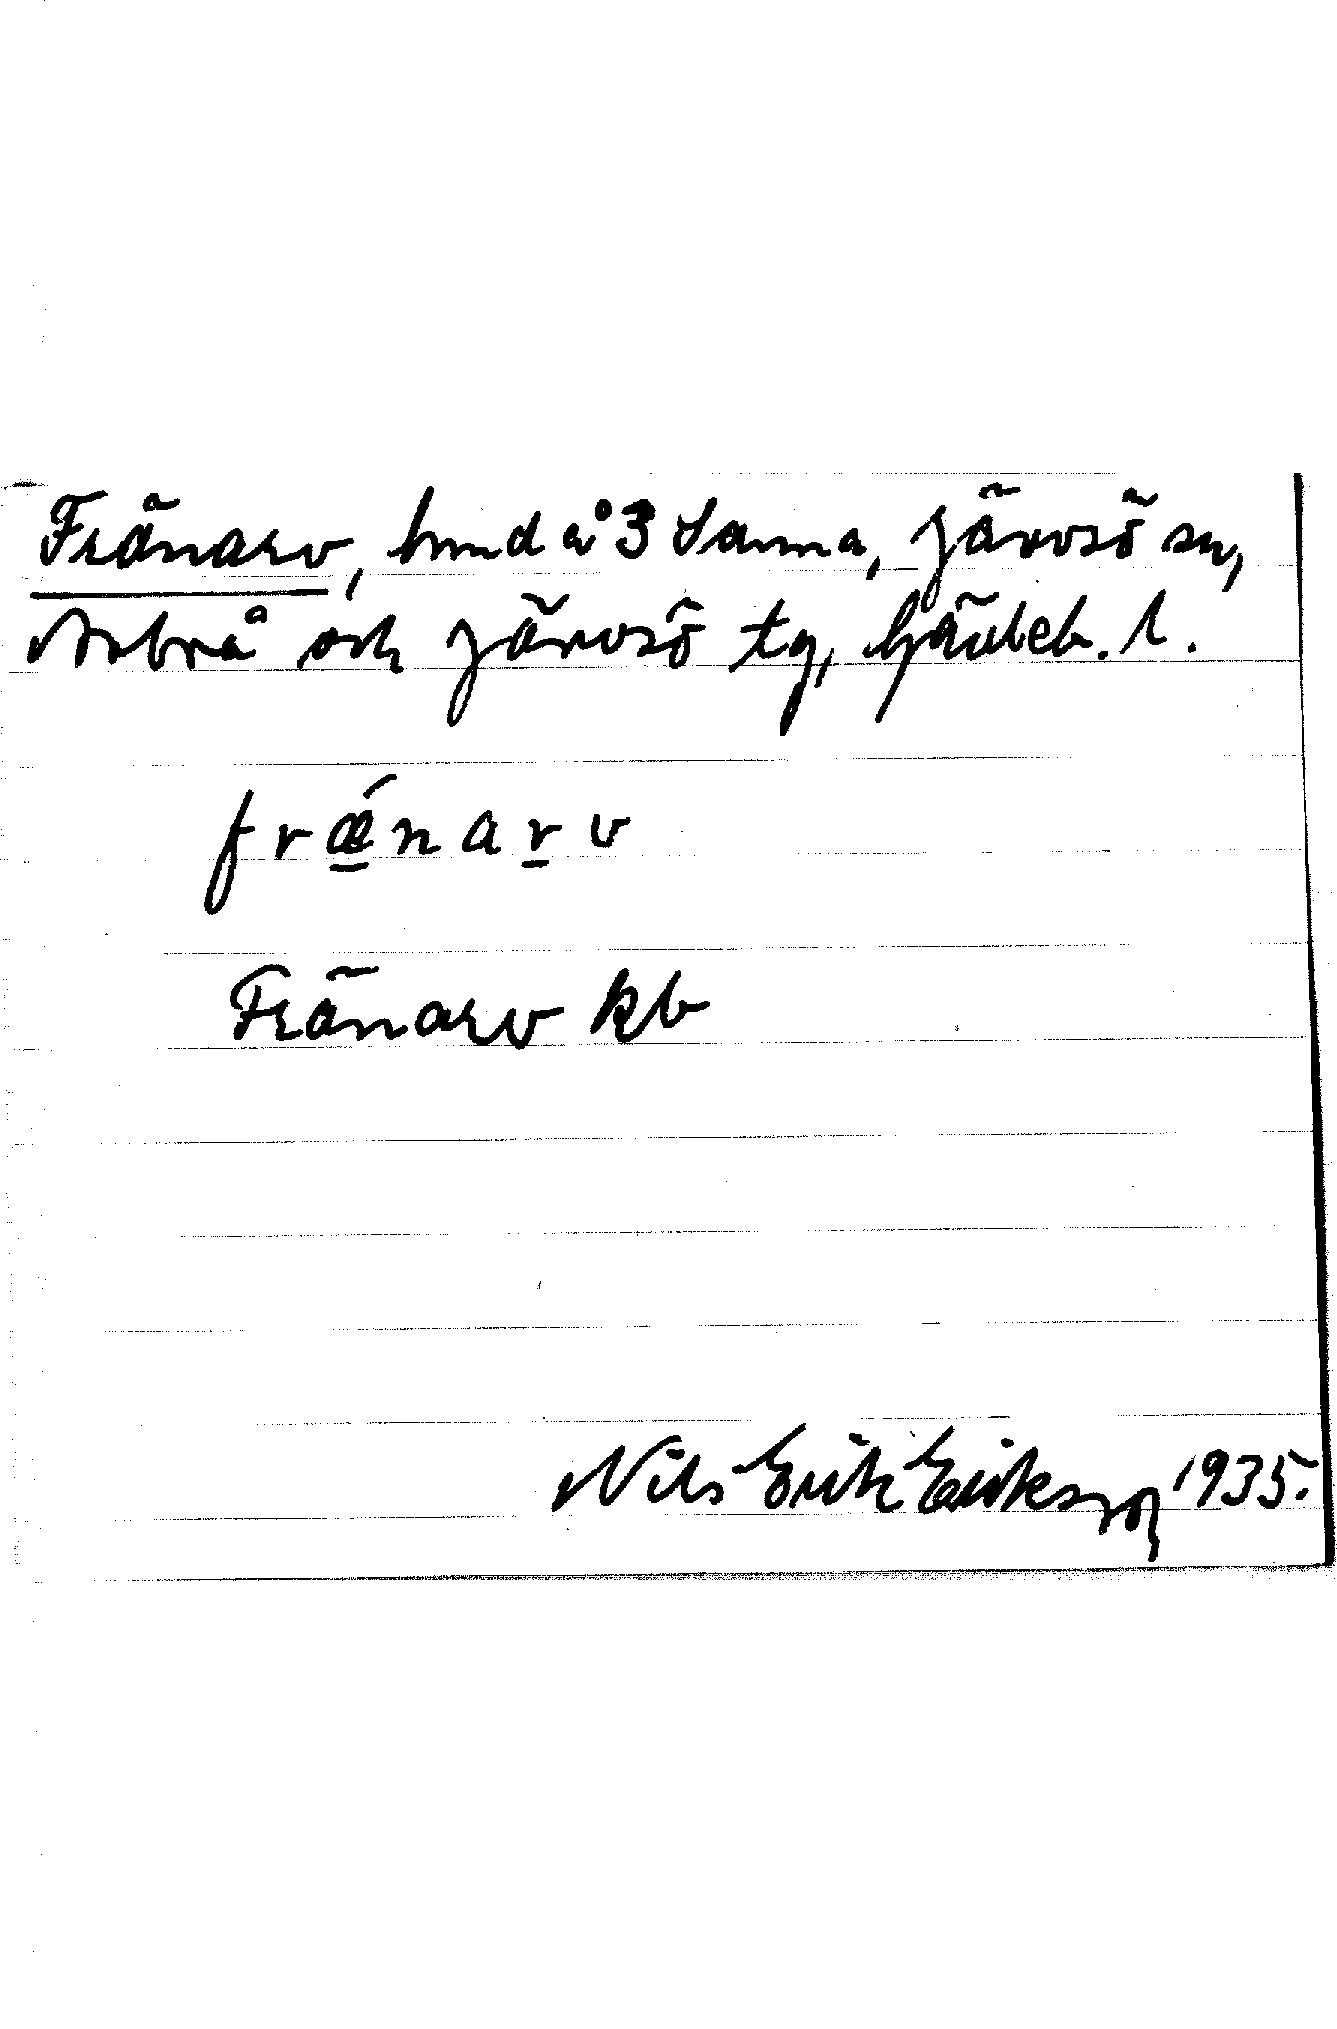 Fränarv, hmd å 3 Sanna, Järvsö sn,
Arbrå och Järvsö tg, Gävleb. l.
frǽnarv
Fränarv kb
Nils Erik Eriksson 1935.